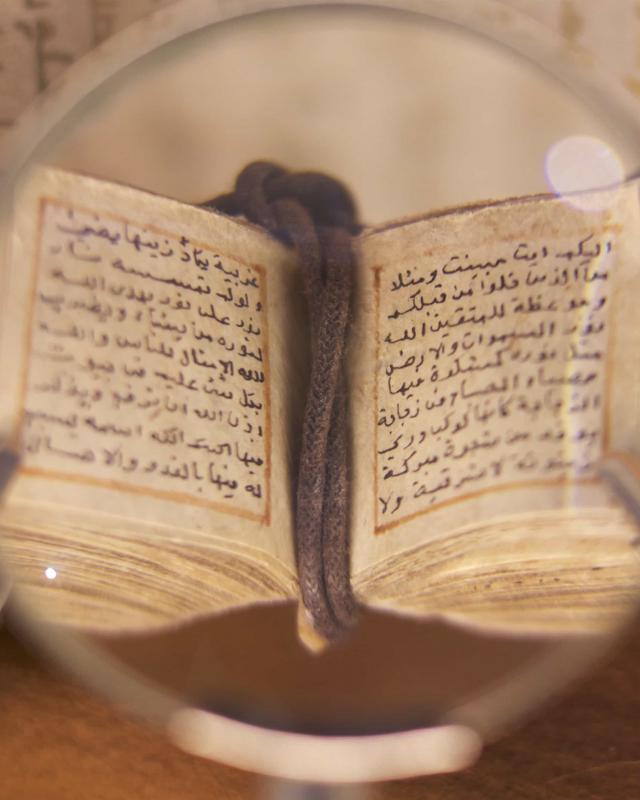 اليكم ايت مبينت ومثلا
من الذين خلوا من قبلكم
وموعظة للمتقين الله
نور السموات والارض
مثل نوره كمشكوة فيها
مصباح المصباح في زجاجة
الزجاجة كانها كوكب دري
يوقد من شجرة مبركة
زيتونة لا شرقية ولا
غربية يكاد زيتها يضئ
ولولم تمسسه نار
نور على نور يهدى الله
لنوره من يشاء ويضرب
الله الامثال للناس والله
بكل شئ عليم في بيوت
اذن الله ان ترفع ويذكر
فيها اسمه يسبح
له فيها بالغدو والاصال